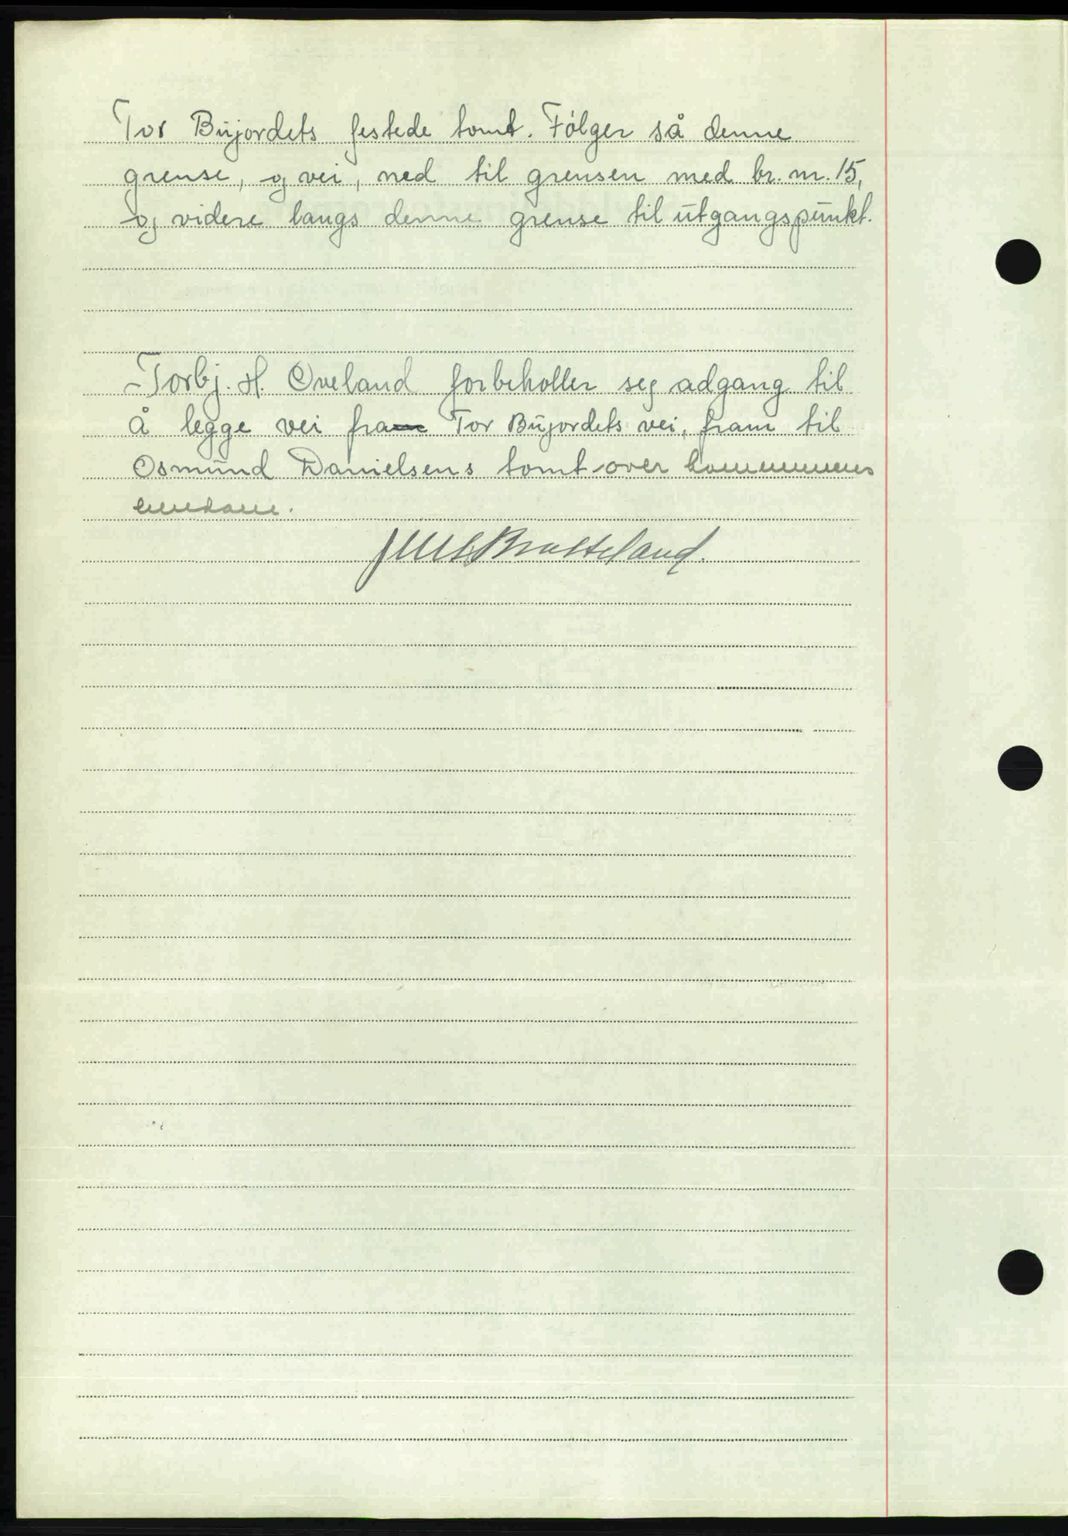 Tor Bujordets festede tomt. Følger så denne
grense, og vei, ned til grensen med br. nr. 15,
og videre langs denne grense til utgangspunkt.
Torbj. H. Øveland forbeholler seg adgang til
å legge vei fra Tor Bujordets vei, fram til
Osmund Danielsens tomt over kommunens
eiendom.